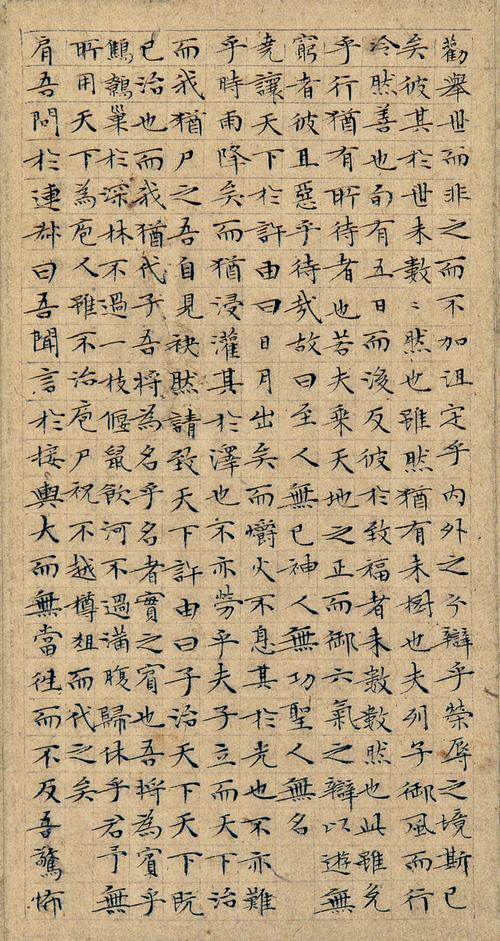 勸舉世而非之而不加沮定乎內外之分辯乎榮辱之境斯已
矣彼其於世未數〻然也雖然猶有未樹也夫列子御風而行
冷然善也旬有五日而後反彼於致福者未數數然也此雖免
乎行猶有所待者也若夫乘天地之正而御六氣之辯以遊無
窮者彼且惡乎待哉故曰至人無已神人無功聖人無名
堯讓天下於許由曰日月出矣而爝火不息其於光也不亦難
乎時雨降矣而猶浸灌其於澤也不亦勞乎夫子立而天下治
而我猶尸之吾自見缺然請致天下許由曰子治天下天下既
已治也而我猶代子吾將為名乎名者實之賓也吾將為賓乎
鷦鷯巢於深林不過一枝偃鼠飲河不過滿腹歸休乎君予無
所用天下為庖人雖不治庖尸祝不越樽俎而代之矣
肩吾問於連叔曰吾聞言於接輿大而無當往而不反吾驚怖